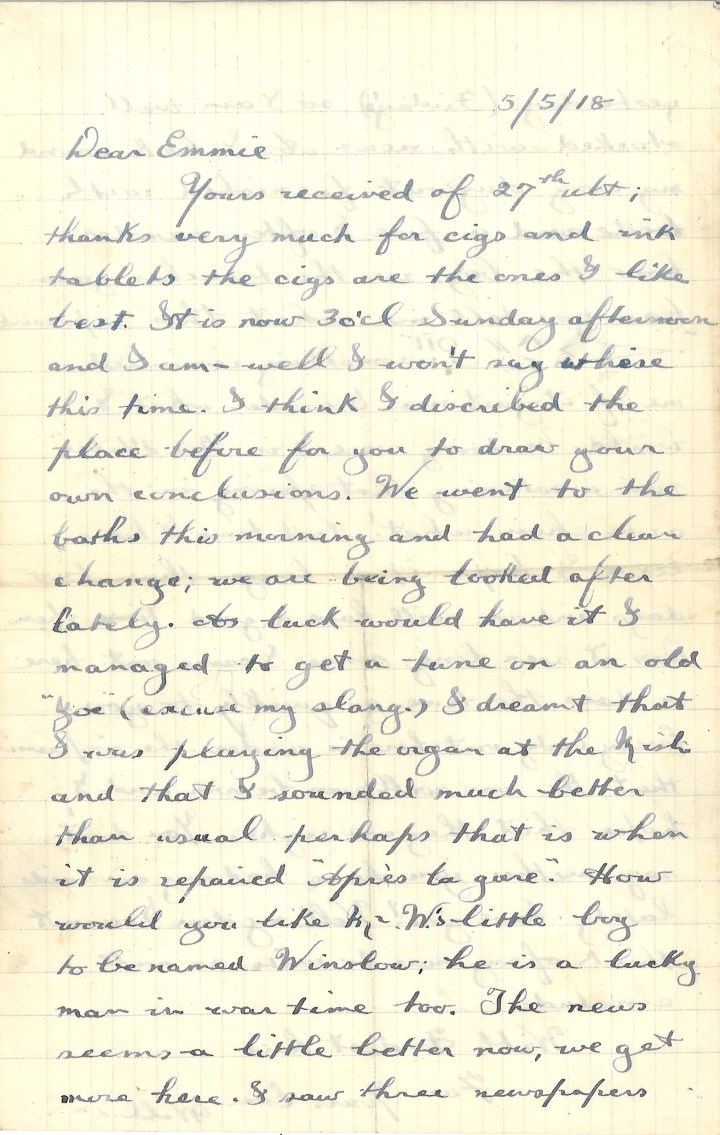 5/5/18
Dear Emmie
Yours received of 27th ult;
thanks very much for cigs and ink
tablets the cigs are the ones I like
best. It is now 3o'cl Sunday afternoon
and I am - well I won't say where
this time. I think I discribed the
place before for you to draw your
own conclusions. We went to the
baths this morning and had a clean
change; we are being looked after
lately. As luck would have it I
managed to get a tune on an old
"Joe" (excuse my slang.) I dreamt that
I was playing the organ at the
and that I sounded much better
than usual perhaps that is when
it is repaired "Apries la gure". How
would you like Mr. W's little boy
to be named Winslow; he is a lucky
man in war time too. The news
seems a little better now, we get
more here. I saw three newspapers